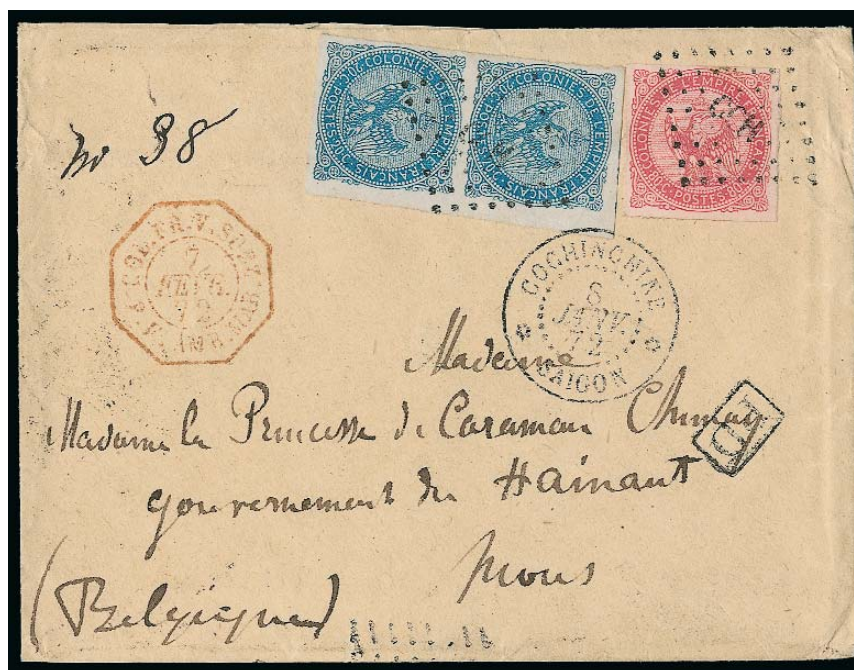 No 38
COLONIES DE L'EMPIRE FRANÇAIS
20C·POSTES·20C
COLONIES DE L'EMPIRE FRANÇAIS
20C·POSTES·20C
COLONIES DE L'EMPIRE
80C·POSTES·80C
CCH
COL. FR. V. SUEZ
7
72
COCHINCHINE
JANV.
72
SAIGON
Madame
Madame la Princesse de Caraman Chimay
PD
gouvernement du Hainaut
Mons
(Belgique)